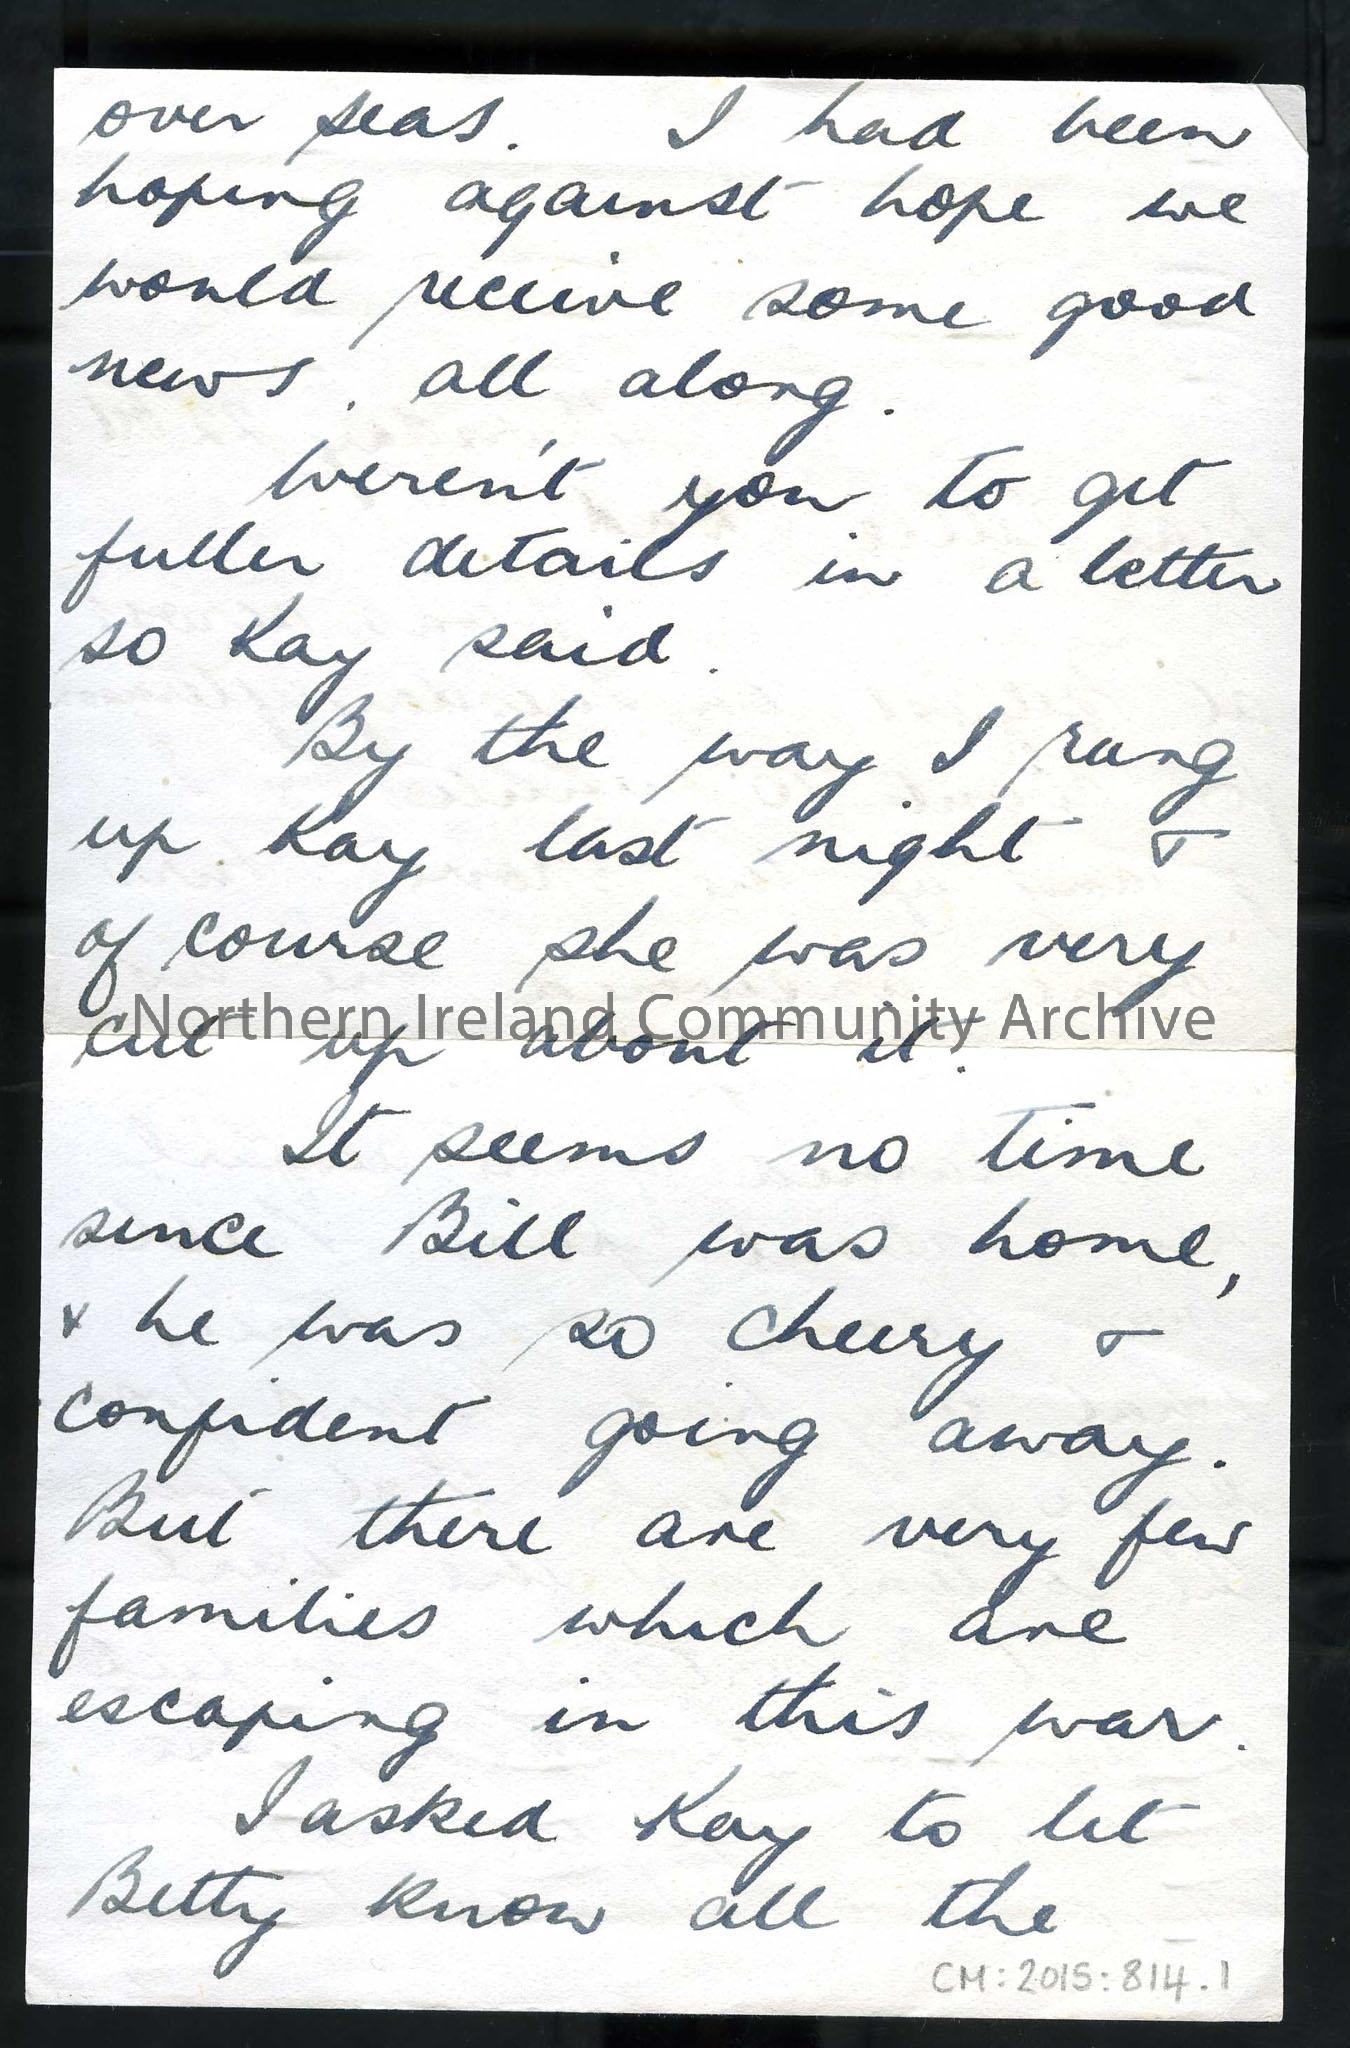 over seas. I had been
hoping against hope we
would receive some good
news. all along.
Weren't you to get
fuller details in a letter
so Kay said.
By the way I rang
up Kay last night &
of course she was very
Northern Ireland Community Archive
cut up about it.
It seems no time
since Bill was home,
& he was so cheery &
confident going away.
But there are very few
families which are
escaping in this war.
I asked Kay to let
Betty know all the
CM:2015:814.1